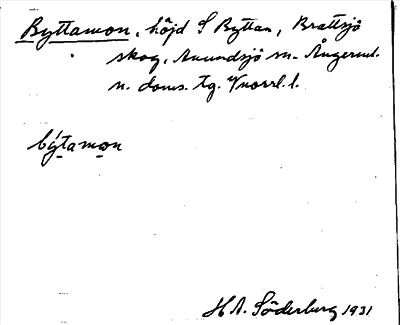 Byttamon, höjd S Byttan, Brattsjö
skog, Anundsjö sn. Ångerml.
n. doms. tg. Vnorrl. l.
býtamon
H. A. Söderberg 1931